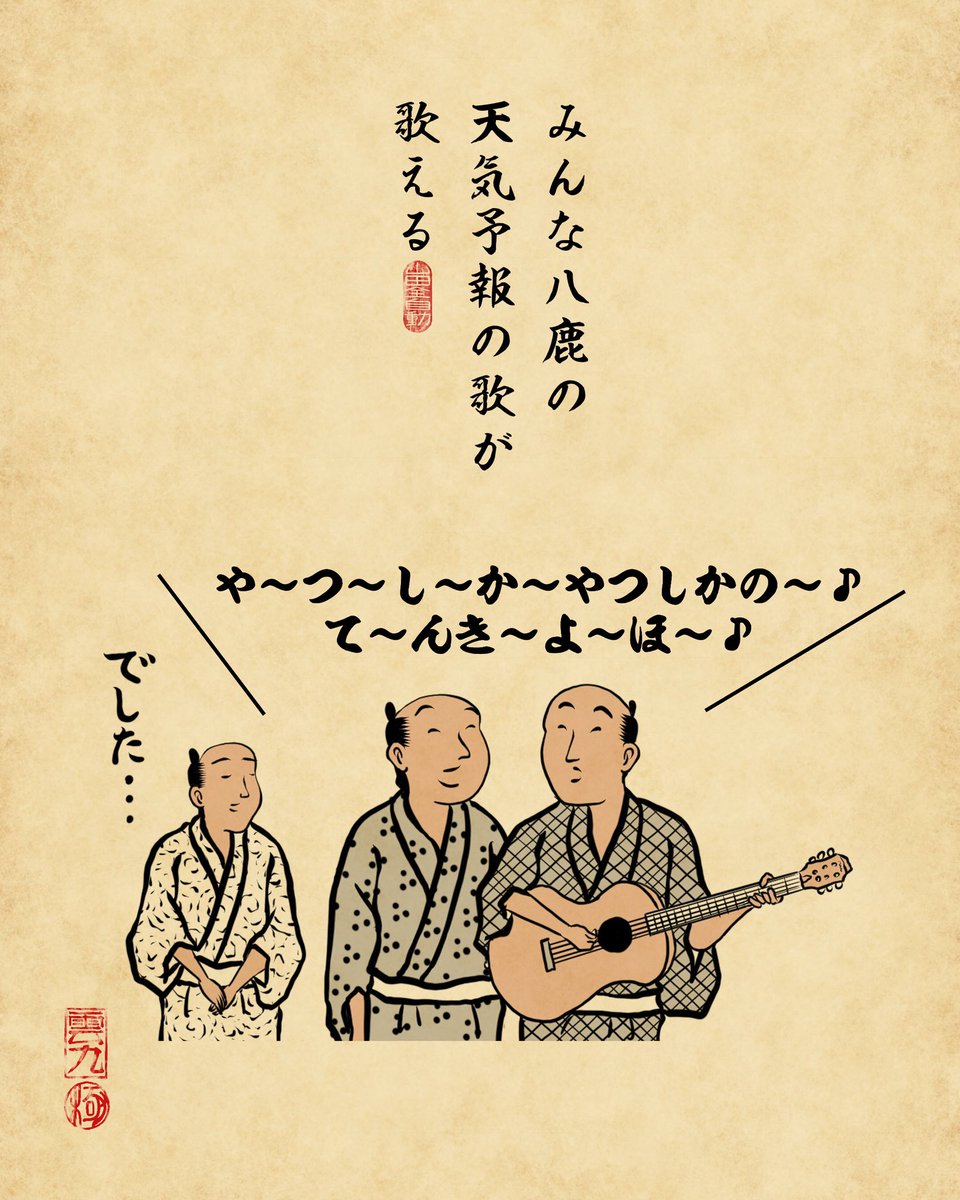 みんな八鹿の
天気予報の歌が
歌える
や〜つ〜し〜か〜やつしかの〜♪
て〜んき〜よ〜ほ〜♪
でした・・・